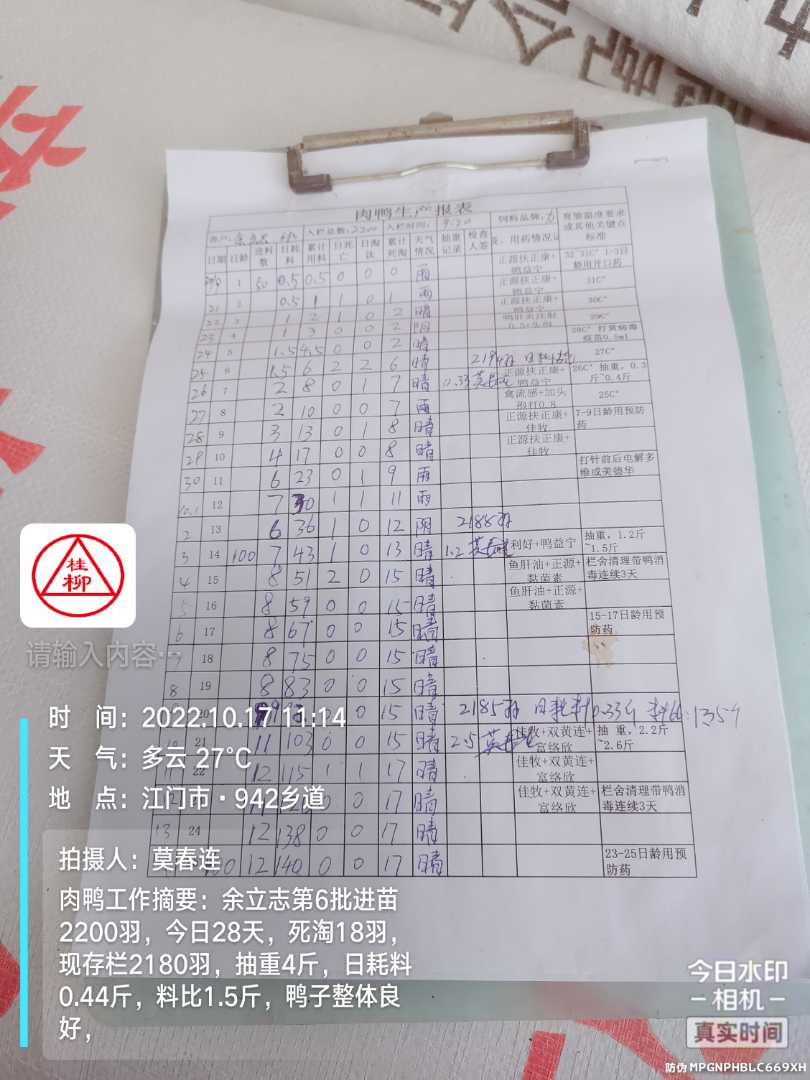 肉鸭生产报表
入栏总数: 2200 入栏时间: 9.20 饲料品牌:
日期 日龄 进料数 日耗料 累计用料 日死亡 日淘汰 累计死淘 天气情况 抽重记录 检查人签 用药情况记 育雏温度要求或其他关键点标准
1 0.5 0.5 0 0 0 雨 正源扶正康+鸭益宁 32~31C° 1-3日龄用开口药
21 2 0.5 1 1 0 1 雨 正源扶正康+鸭益宁 31C°
22 3 1 2 1 0 2 晴 正源扶正康+鸭益宁 30C°
23 4 1 3 0 0 2 阴 29C°
24 5 1.5 4.5 0 0 2 晴 28C° 打黄病毒疫苗0.5ml
25 6 1.5 6 2 2 6 晴 27C°
26 7 2 8 0 1 7 晴 0.33 正源扶正康+鸭益宁 26C° 抽重，0.3斤~0.4斤
27 8 2 10 0 0 7 雨 25C°
28 9 3 13 0 1 8 晴 正源扶正康+佳牧 7-9日龄用预防药
29 10 4 17 0 0 8 晴 正源扶正康+佳牧
30 11 6 23 0 1 9 雨 打针前后电解多维或美德华
10.1 12 7 30 1 1 11 雨
2 13 6 36 1 0 12 阴 2188羽
3 14 100 7 43 1 0 13 晴 1.2 利好+鸭益宁 抽重，1.2斤~1.5斤
4 15 8 51 2 0 15 晴 鱼肝油+正源+黏菌素 栏舍清理带鸭消毒连续3天
5 16 8 59 0 0 15 晴 鱼肝油+正源+黏菌素
6 17 8 67 0 0 15 晴 15-17日龄用预防药
7 18 8 75 0 0 15 晴
8 19 8 83 0 0 15 晴
20 0 0 15 晴 2185羽 日耗料0.33斤 料比:1.35斤
21 11 103 0 0 15 晴 2.5 佳牧+双黄连+富络欣 抽重，2.2斤~2.6斤
22 12 115 1 1 17 晴 佳牧+双黄连+富络欣
0 0 17 晴 佳牧+双黄连+富络欣 栏舍清理带鸭消毒连续3天
13 24 12 138 0 0 17 晴
12 140 0 0 17 晴 23-25日龄用预防药
桂柳
请输入内容…
时 间: 2022.10.17 11:14
天 气: 多云 27℃
地 点: 江门市·942乡道
拍摄人: 莫春连
肉鸭工作摘要: 余立志第6批进苗
2200羽，今日28天，死淘18羽，
现存栏2180羽，抽重4斤，日耗料
0.44斤，料比1.5斤，鸭子整体良
好，
今日水印
-相机-
真实时间
防伪 MPGNPHBLC669XH